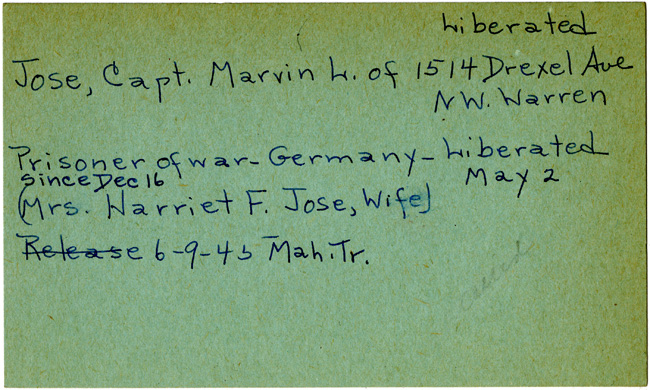 Liberated
Jose, Capt. Marvin L. of 1514 Drexel Ave
N.W. Warren
Prisoner of war - Germany - Liberated
since Dec 16 May 2
(Mrs. Harriet F. Jose, Wife)
Release 6-9-45 Mah. Tr.